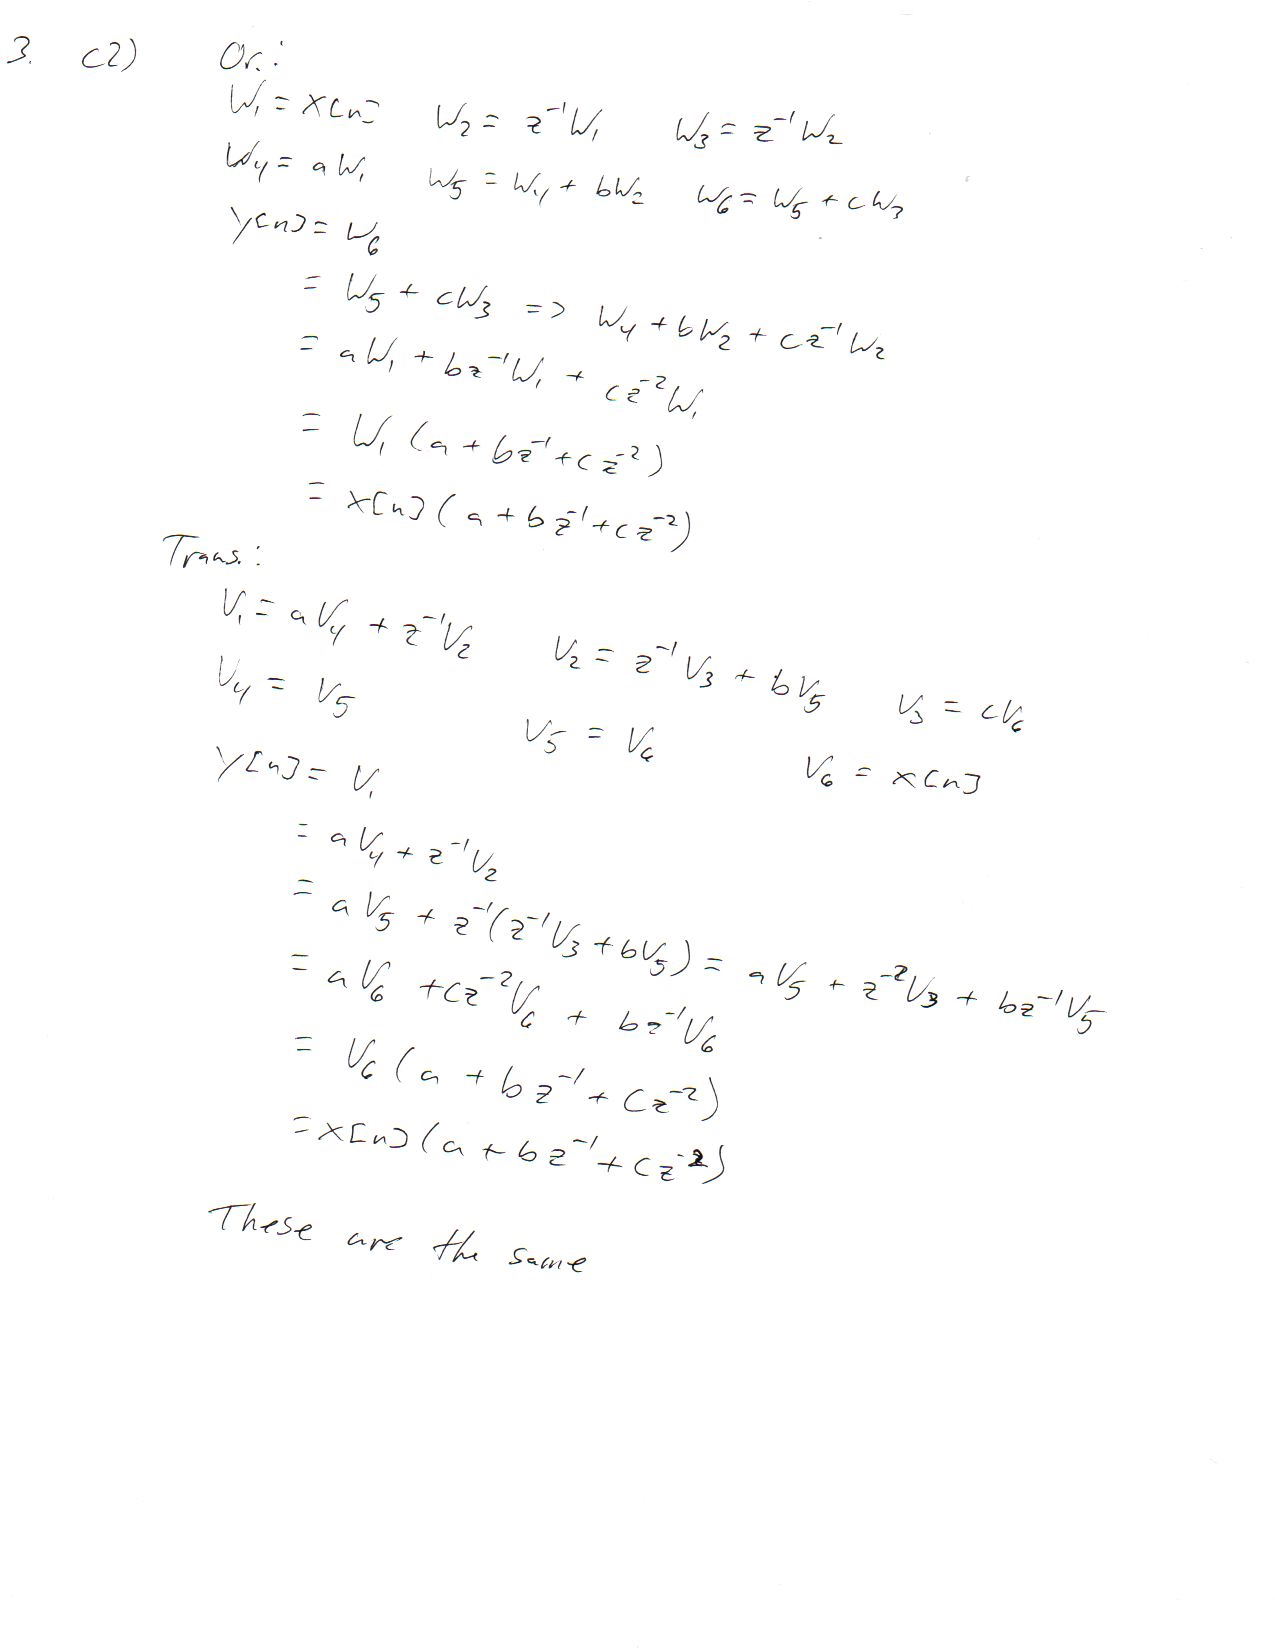 3. c2) Or.:
W₁ = x[n] W₂ = z⁻¹W₁ W₃ = z⁻¹W₂
W₄ = aW₁ W₅ = W₄ + bW₂ W₆ = W₅ + cW₃
y[n] = W₆
= W₅ + cW₃ => W₄ + bW₂ + cz⁻¹W₂
= aW₁ + bz⁻¹W₁ + cz⁻²W₁
= W₁ (a + bz⁻¹ + cz⁻²)
= x[n] (a + bz⁻¹ + cz⁻²)
Trans.:
V₁ = aV₄ + z⁻¹V₂ V₂ = z⁻¹V₃ + bV₅ V₃ = cV₆
V₄ = V₅ V₅ = V₆ V₆ = x[n]
y[n] = V₁
= aV₄ + z⁻¹V₂
= aV₅ + z⁻¹(z⁻¹V₃ + bV₅) = aV₅ + z⁻²V₃ + bz⁻¹V₅
= aV₆ + cz⁻²V₆ + bz⁻¹V₆
= V₆ (a + bz⁻¹ + cz⁻²)
= x[n] (a + bz⁻¹ + cz⁻²)
These are the same